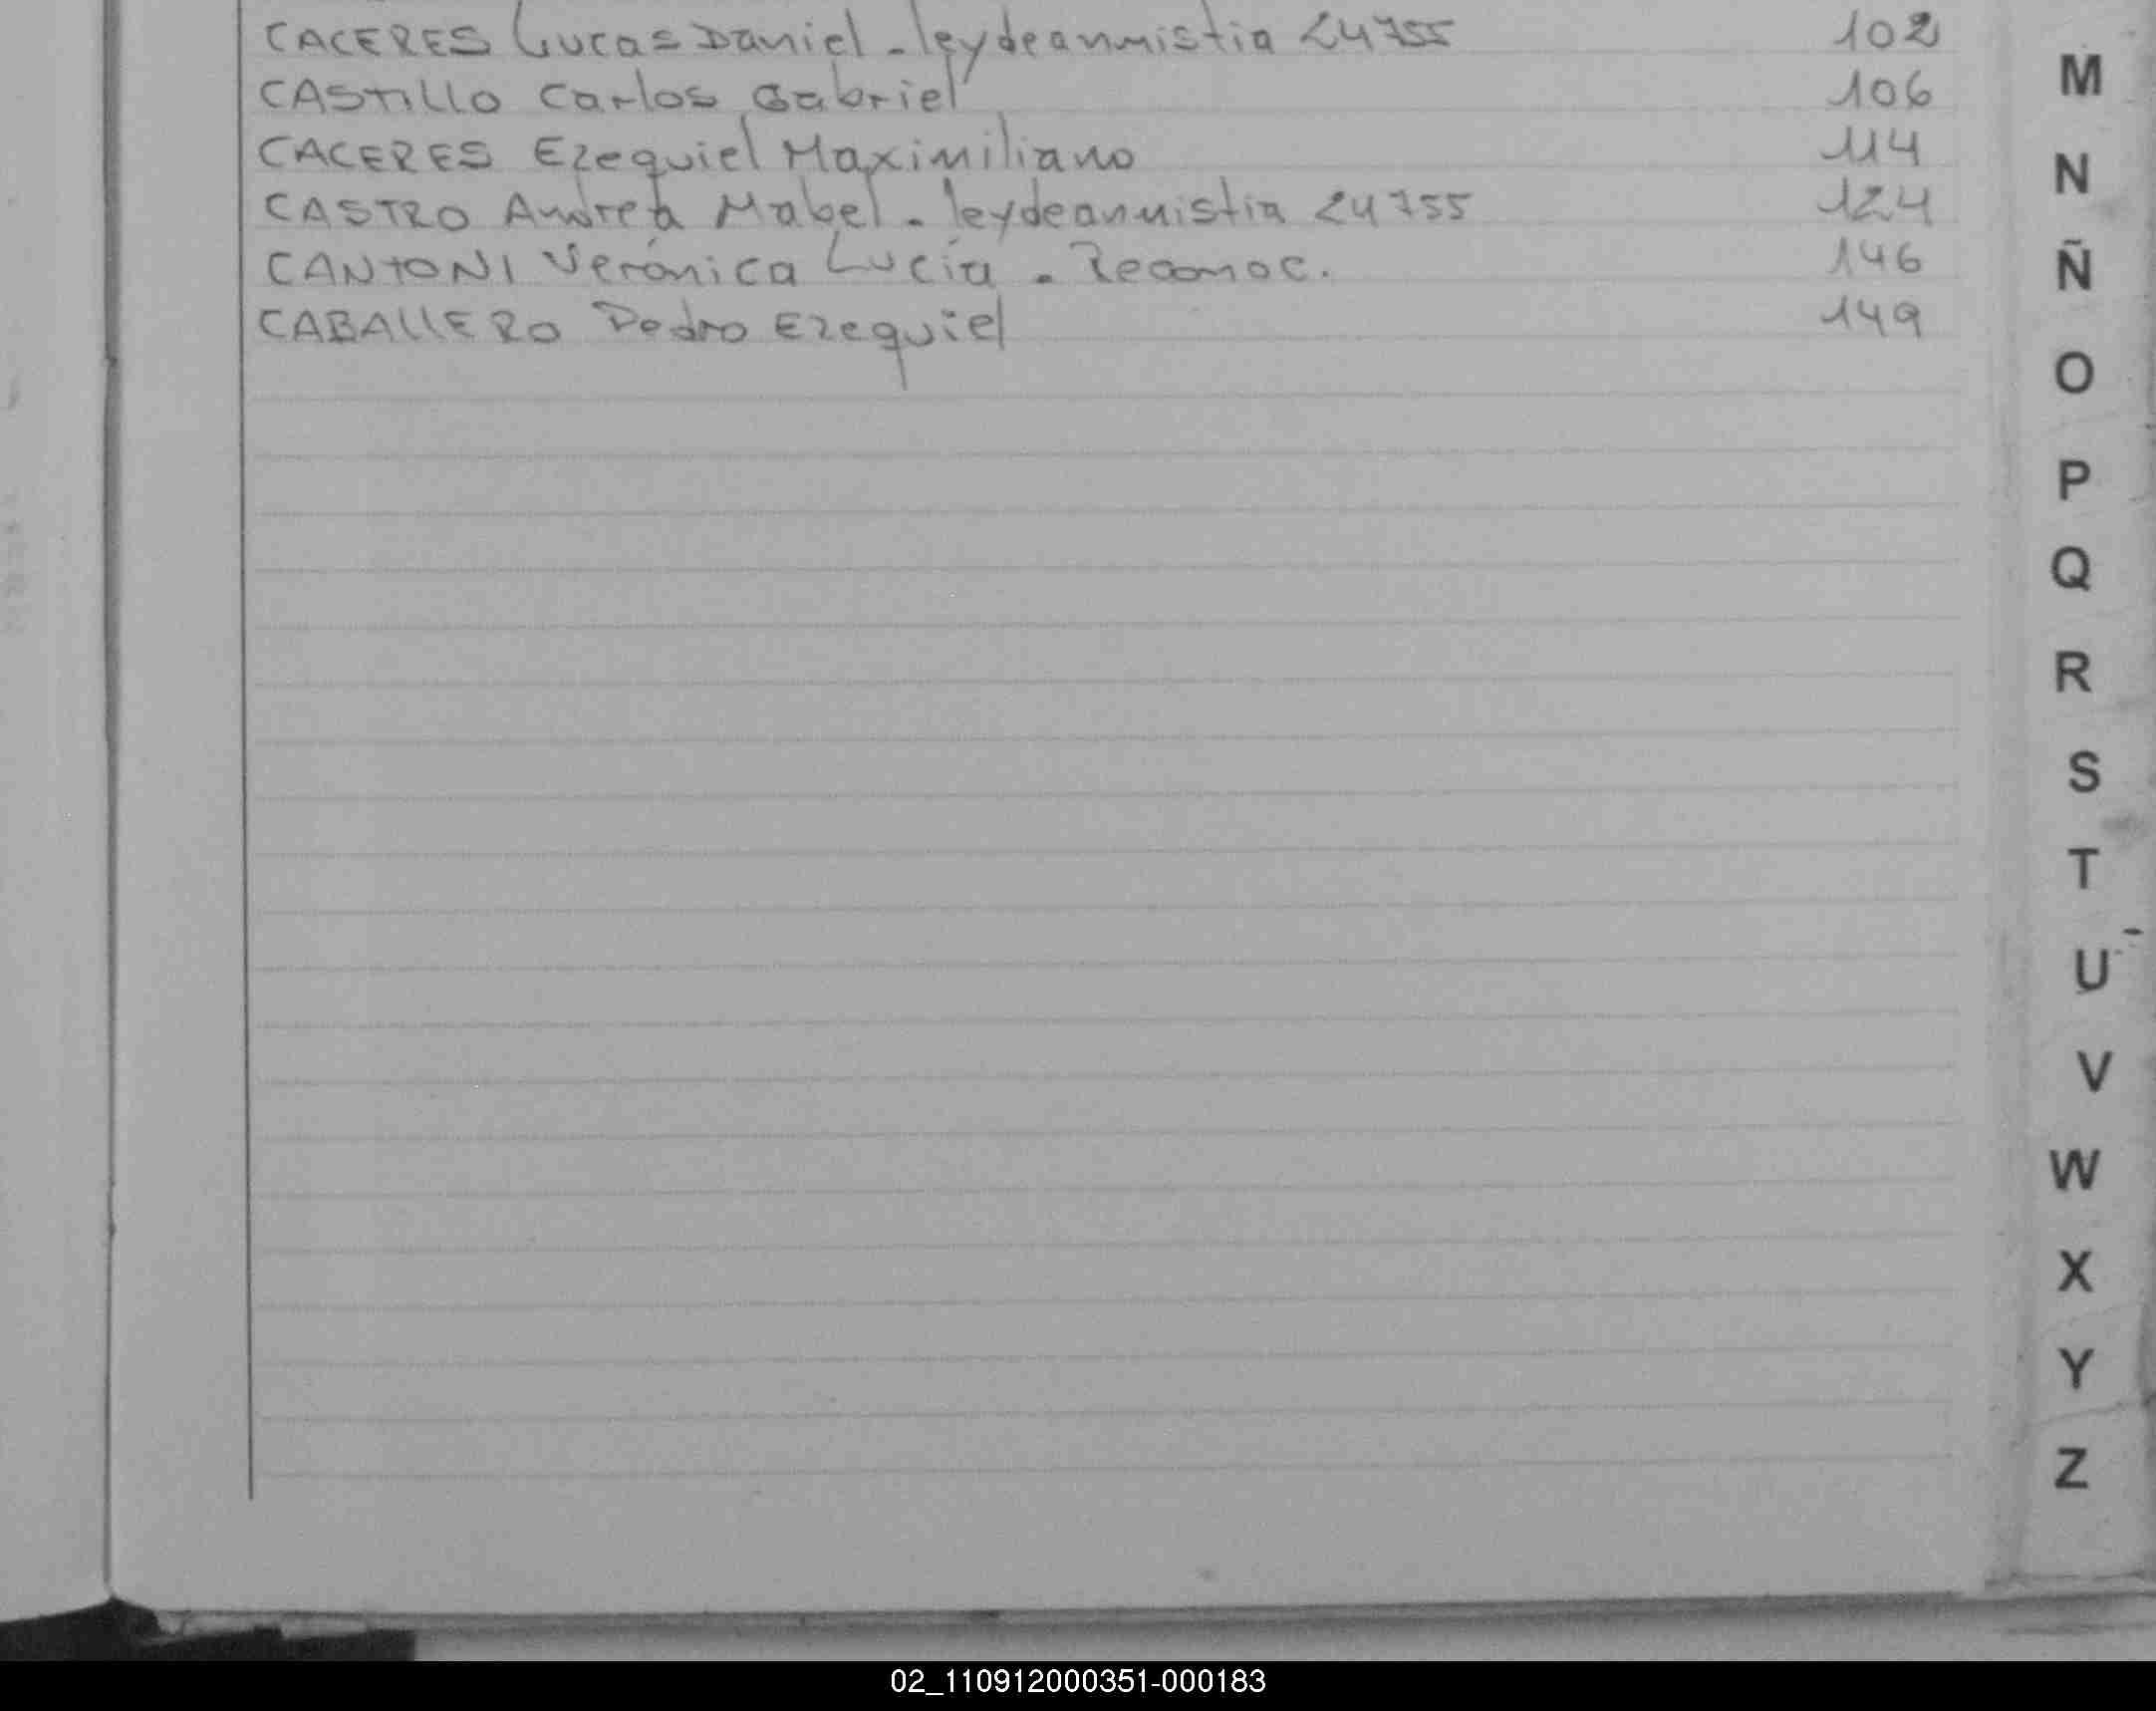 CACERES Lucas Daniel - ley de anmistia 24755 102
CASTILLO Carlos Gabriel 106
CACERES Ezequiel Maximiliano 114
CASTRO Andrea Mabel - ley de anmistia 24755 124
CANTONI Verónica Lucía - Reconoc. 146
CABALLERO Pedro Ezequiel 149
M
N
Ñ
O
P
Q
R
S
T
U
V
W
X
Y
Z
02_110912000351-000183